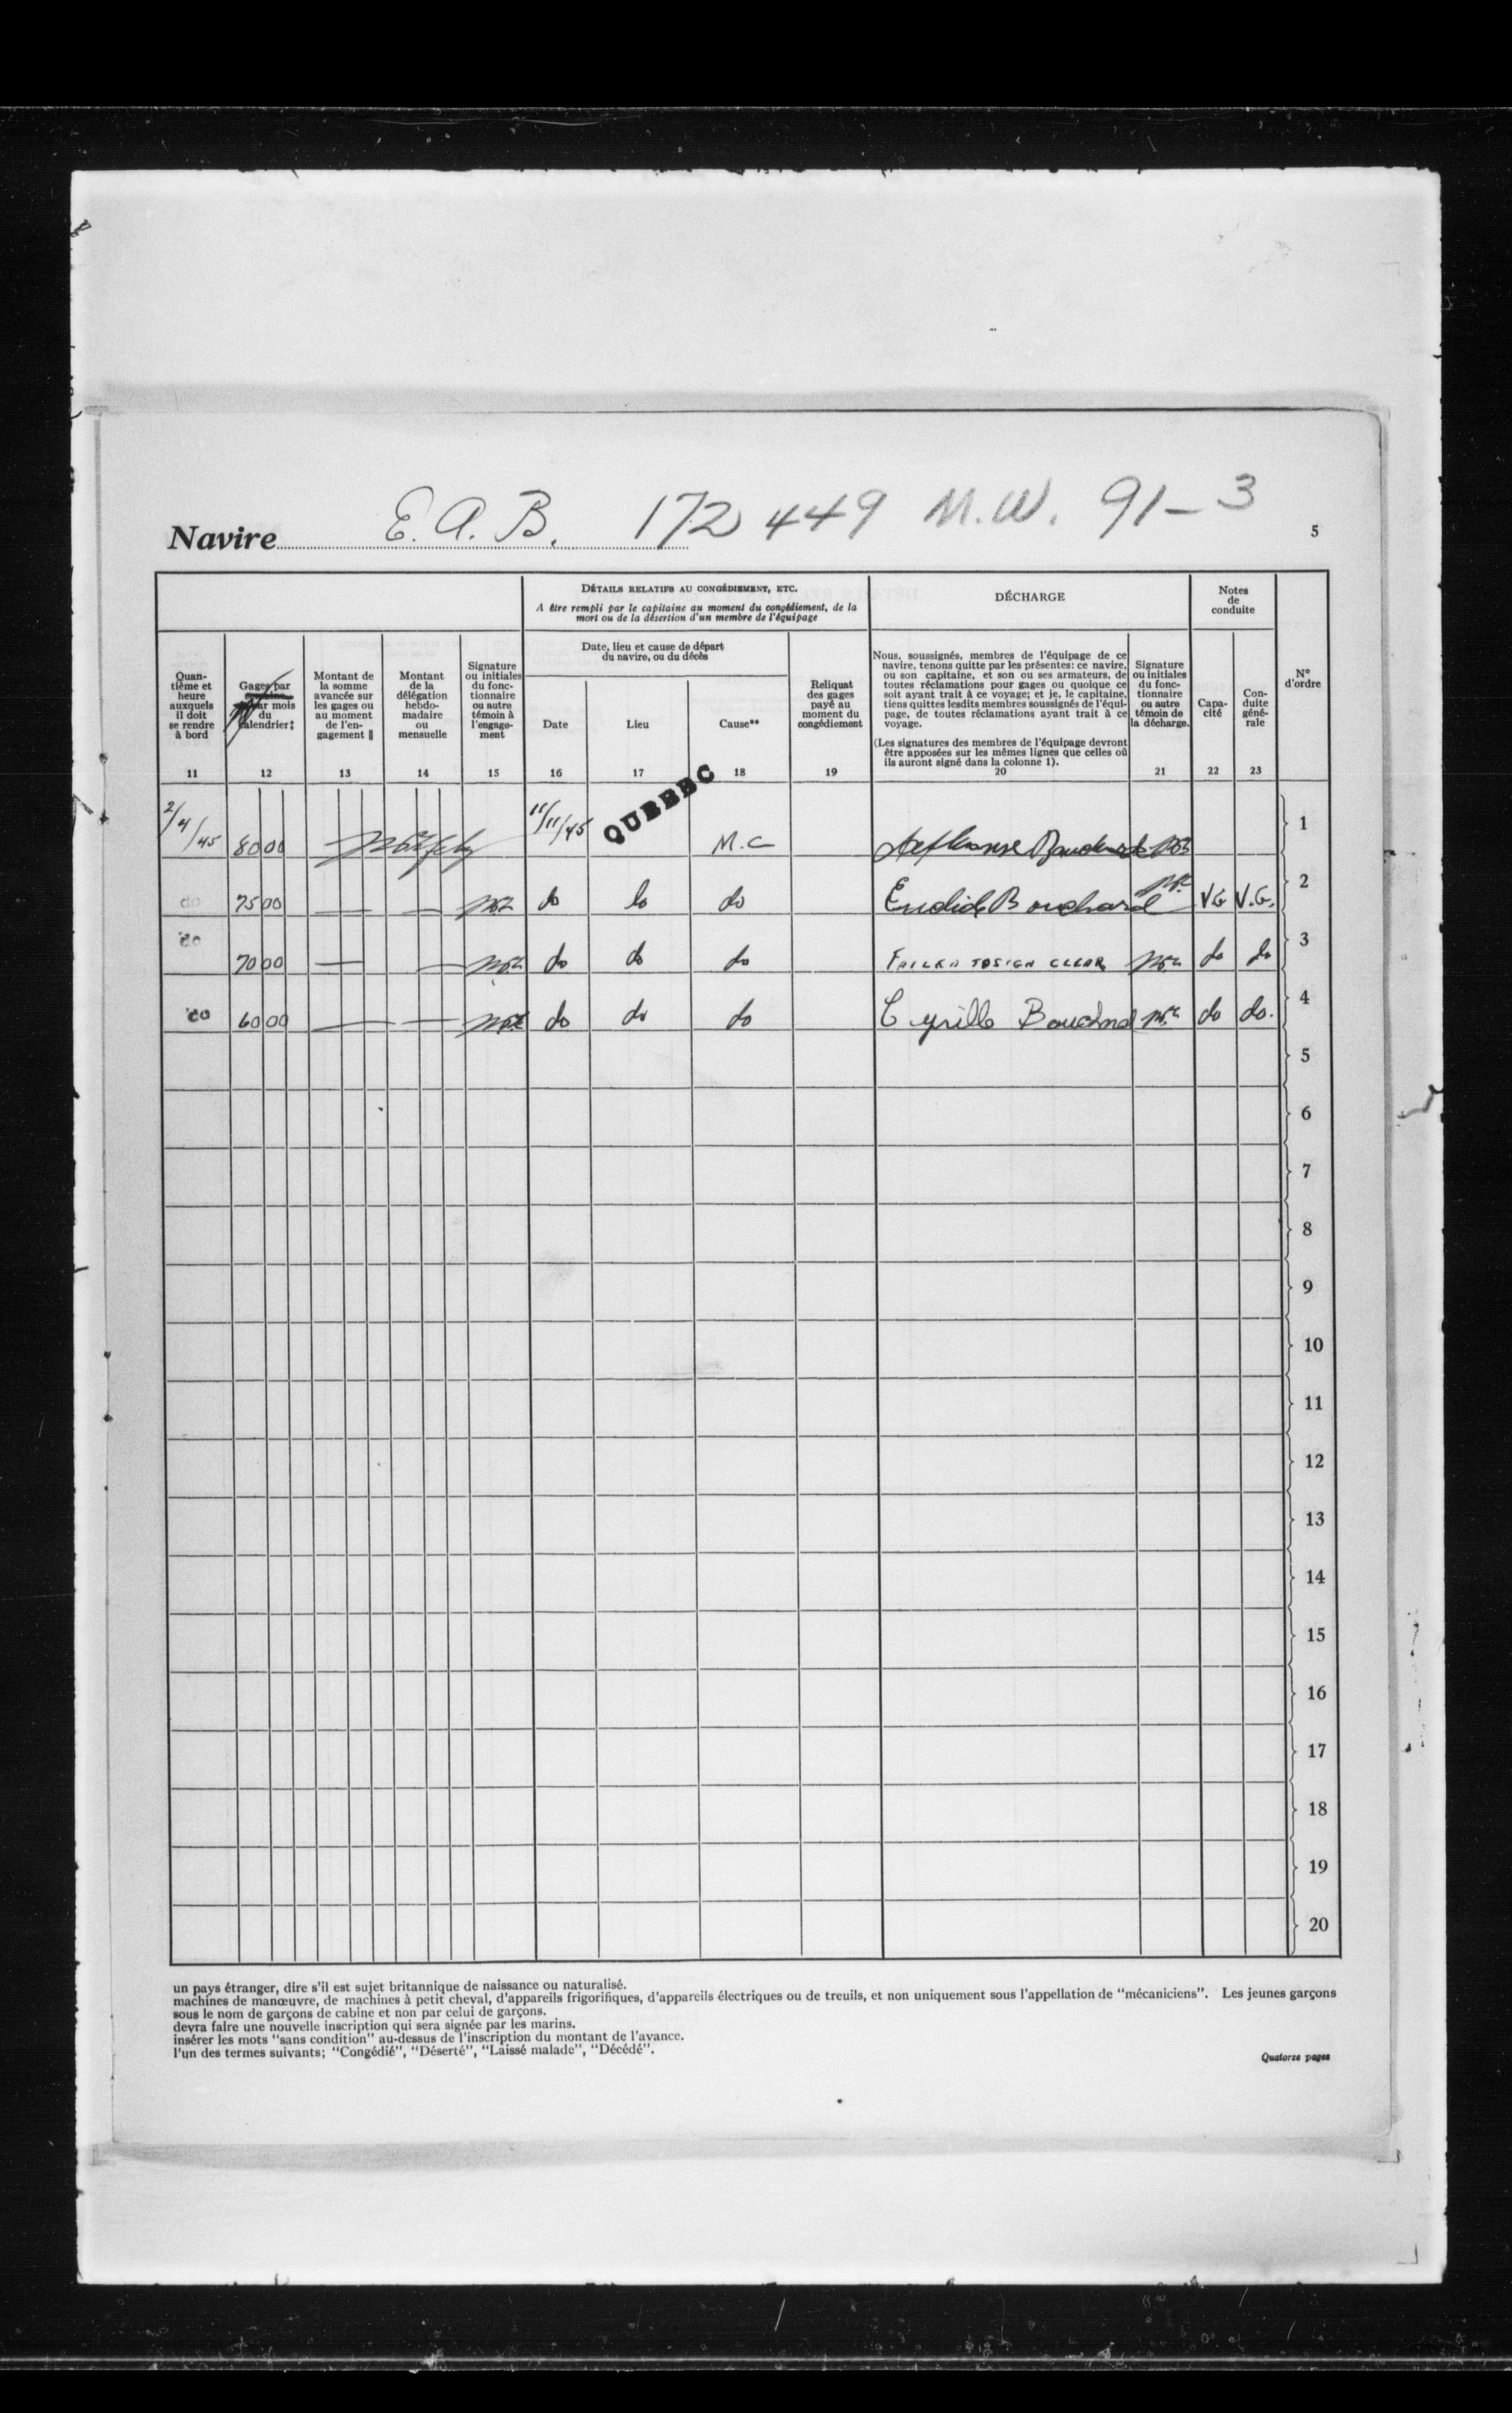 Navire E. A. B. 172449 M.W. 91-3
5
DÉTAILS RELATIFS AU CONGÉDIEMENT, ETC.
A être rempli par le capitaine au moment du congédiement, de la
mort ou de la désertion d'un membre de l'équipage
DÉCHARGE
Notes
de
conduite
Quan-
tième et
heure
auxquels
il doit
se rendre
à bord
11
Gages par
semaine
par mois
du
calendrier‡
12
Montant de
la somme
avancée sur
les gages ou
au moment
de l'en-
gagement ‖
13
Montant
de la
délégation
hebdo-
madaire
ou
mensuelle
14
Signature
ou initiales
du fonc-
tionnaire
ou autre
témoin à
l'engage-
ment
15
Date, lieu et cause de départ
du navire, ou du décès
Date
16
Lieu
17
Cause**
18
Reliquat
des gages
payé au
moment du
congédiement
19
Nous, soussignés, membres de l'équipage de ce
navire, tenons quitte par les présentes: ce navire,
ou son capitaine, et son ou ses armateurs, de
toutes réclamations pour gages ou quoique ce
soit ayant trait à ce voyage; et je, le capitaine,
tiens quittes lesdits membres soussignés de l'équi-
page, de toutes réclamations ayant trait à ce
voyage.
(Les signatures des membres de l'équipage devront
être apposées sur les mêmes lignes que celles où
ils auront signé dans la colonne 1).
20
Signature
ou initiales
du fonc-
tionnaire
ou autre
témoin de
la décharge.
21
Capa-
cité
22
Con-
duite
géné-
rale
23
N°
d'ordre
2/4/45 80 00 11/11/45 QUEBEC M.C 1
do 75 00 — — do do do Euclide Bouchard V.G V.G. 2
do 70 00 — — do do do FAILED TO SIGN CLEAR do do 3
do 60 00 — — do do do Cyrille Bouchard do do. 4
5
6
7
8
9
10
11
12
13
14
15
16
17
18
19
20
un pays étranger, dire s'il est sujet britannique de naissance ou naturalisé.
machines de manœuvre, de machines à petit cheval, d'appareils frigorifiques, d'appareils électriques ou de treuils, et non uniquement sous l'appellation de "mécaniciens". Les jeunes garçons
sous le nom de garçons de cabine et non par celui de garçons.
devra faire une nouvelle inscription qui sera signée par les marins.
insérer les mots "sans condition" au-dessus de l'inscription du montant de l'avance.
l'un des termes suivants; "Congédié", "Déserté", "Laissé malade", "Décédé".
Quatorze pages